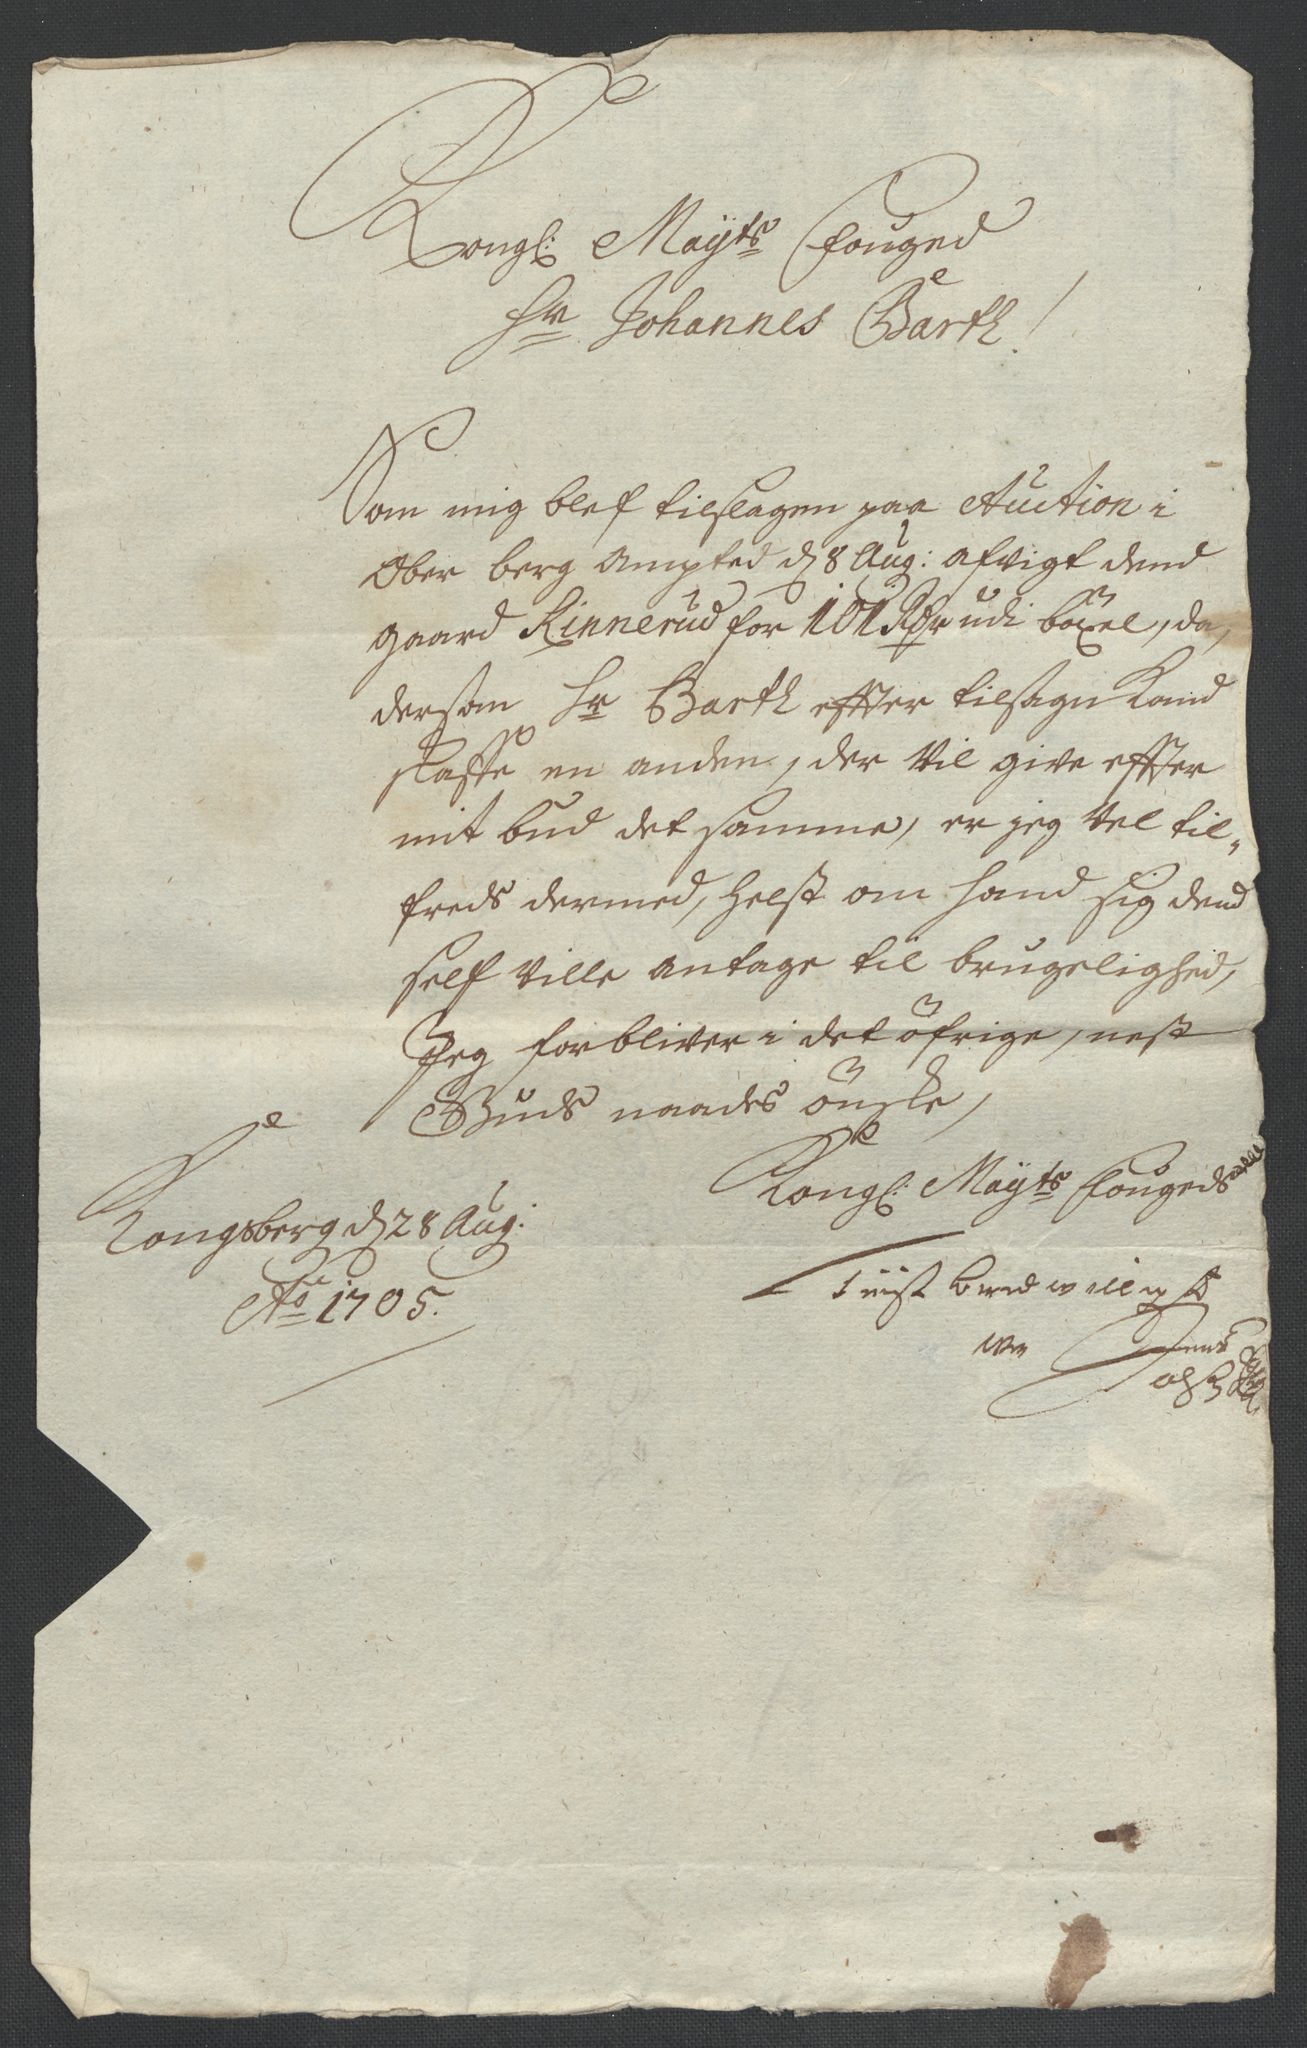 Kongl: Maÿts Fouged
Hr Johannes Barth!
Som mig blef tilslagen paa Auction i
Ober berg ampted d 8 Aug: afvigt dend
gaard Rinnerud for 101 Rdr udi böxel, da,
dersom Hr Barth effter tilsagn kand
skaffe en anden, der vil give effter
mit bud det samme, er jeg vel til-
freds dermed, helst om hand sig dend
self ville antage til brugelighed,
Jeg forbliver i det öfrige, nest
Guds naades önske,
Kongl: Maÿts Fougeds
Kongsberg d 28 Aug:
Ao 1705.
tienst beredwilligst
ven Jens
Olss